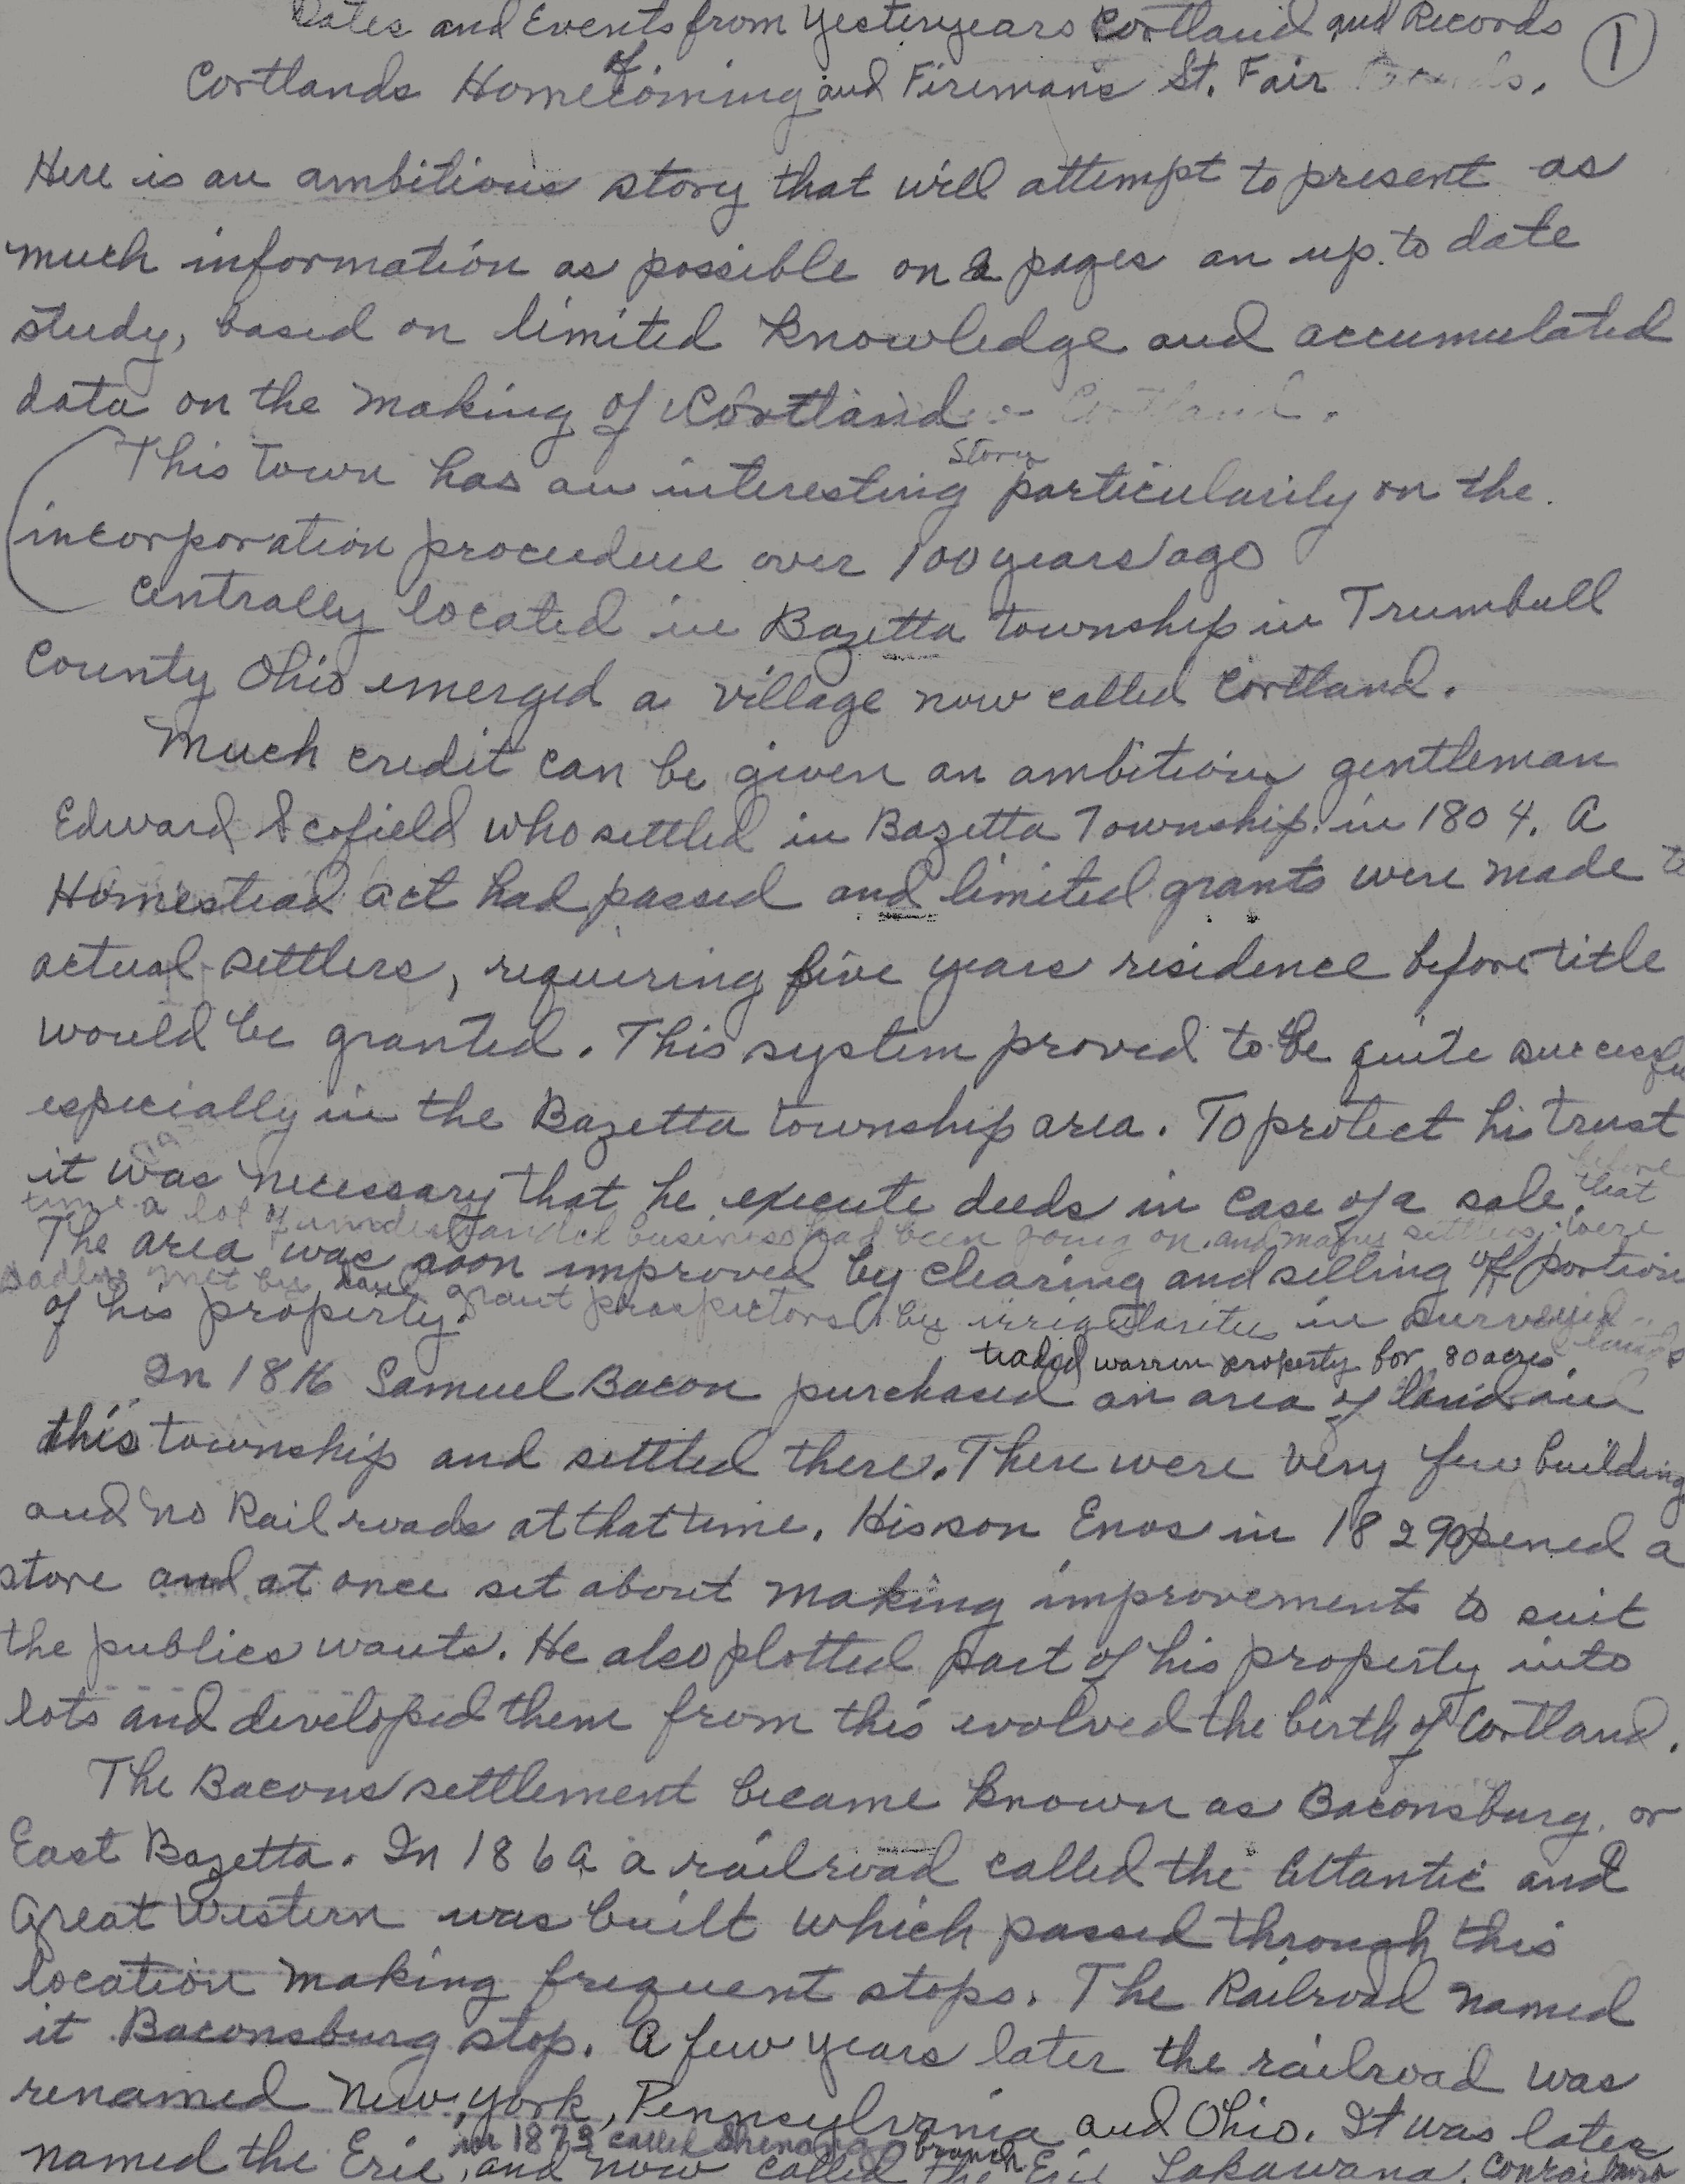 Dates and Events from Yesteryears Cortland and Records
①
of
Cortlands Homecoming and Firemans St. Fair
Here is an ambitious story that will attempt to present as
much information as possible on 2 pages an up to date
study, based on limited knowledge and accumulated
data on the making of Cortland
Story
This town has an interesting particularily on the
incorporation proceedure over 100 years ago
Centrally located in Bazetta township in Trumbull
County Ohio emerged a village now called Cortland.
Much credit can be given an ambitious gentleman
Edward Scofield who settled in Bazetta Township in 1804. A
Homestead act had passed and limited grants were made to
actual settlers, requiring five years residence before title
would be granted. This system proved to be quite successfu
especially in the Bazetta township area. To protect his trust
before
it was necessary that he execute deeds in case of a sale. that
time a lot of underhanded business had been going on and many settlers were
The area was soon improved by clearing and selling off portion
sadly met by land grant prospectors by irrigularities in surveyed lands
of his property.
traded warren property for 80 acres
In 1816 Samuel Bacon purchased an area of land in
this township and settled there. There were very few building
and no Rail roads at that time. His son Enos in 1829 opened a
store and at once set about making improvements to suit
the publics wants. He also plotted part of his property into
lots and developed them from this evolved the birth of Cortland.
The Bacons settlement became known as Baconsburg, or
East Bazetta. In 186 a railroad called the Atlantic and
Great Western was built which passed through this
location making frequent stops. The Railroad named
it Baconsburg stop. A few years later the railroad was
renamed New York, Pennsylvania and Ohio. It was later
in 1873 called Shenango branch
named the Erie, and now called the Erie Lakawana, Conrail